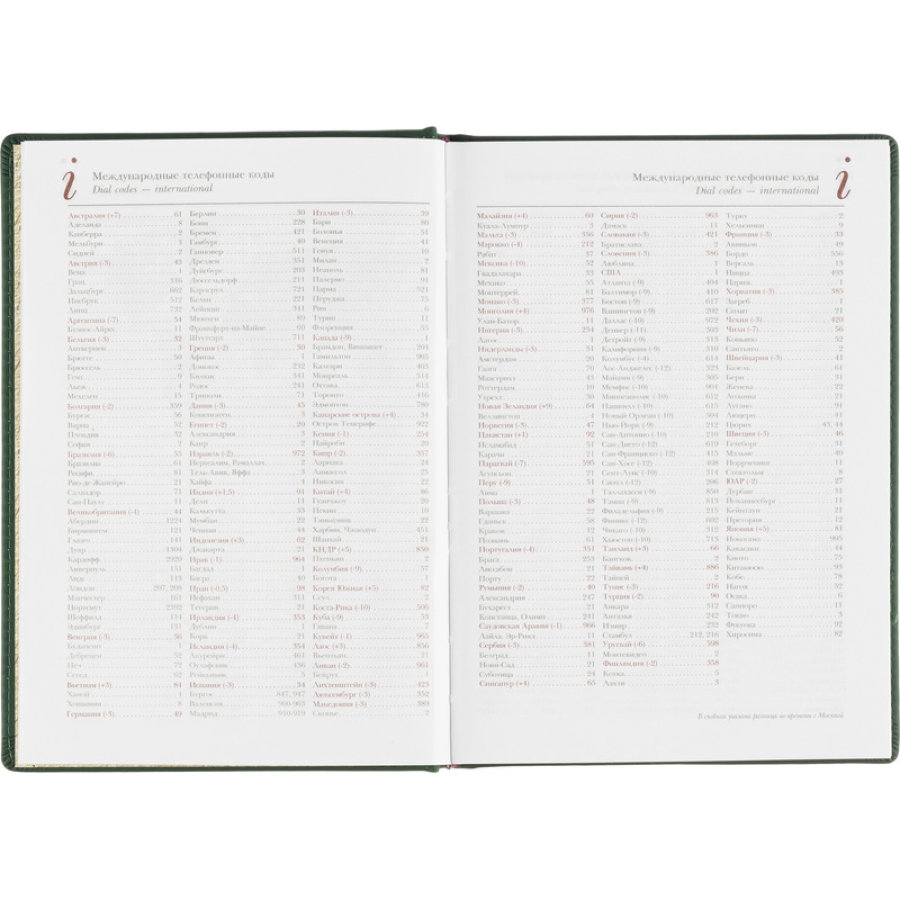 Международные телефонные коды
Dial codes — international
Австралия (+7) 61
Аделаида 8
Канберра 2
Мельбурн 3
Сидней 2
Австрия (-3) 43
Вена 1
Грац 316
Зальцбург 662
Инсбрук 512
Линц 732
Аргентина (-7) 54
Буэнос-Айрес 11
Бельгия (-3) 32
Антверпен 3
Брюгге 50
Брюссель 2
Гент 9
Льеж 4
Мехелен 15
Болгария (-2) 359
Бургас 56
Варна 52
Пловдив 32
София 2
Бразилия (-6) 55
Бразилиа 61
Ресифи 81
Рио-де-Жанейро 21
Сальвадор 71
Сан-Паулу 11
Великобритания (-4) 44
Абердин 1224
Бирмингем 121
Глазго 141
Дувр 1304
Кардифф 2920
Ливерпуль 151
Лидс 113
Лондон 207, 208
Манчестер 161
Портсмут 2392
Шеффилд 114
Эдинбург 131
Венгрия (-3) 36
Будапешт 1
Дебрецен 52
Печ 72
Сегед 62
Вьетнам (+3) 84
Ханой 4
Хошимин 8
Германия (-3) 49
Берлин 30
Бонн 228
Бремен 421
Гамбург 40
Ганновер 511
Дрезден 351
Дуйсбург 203
Дюссельдорф 211
Карлсруэ 721
Кельн 221
Лейпциг 341
Мюнхен 89
Франкфурт-на-Майне 69
Штутгарт 711
Греция (-2) 30
Афины 1
Родос 241
Дания (-3) 45
Египет (-2) 20
Александрия 3
Каир 2
Израиль (-2) 972
Иерусалим, Рамаллах 2
Тель-Авив, Яффа 3
Хайфа 4
Индия (+1,5) 91
Дели 11
Калькутта 33
Мумбаи 22
Ченнаи 44
Индонезия (+3) 62
Джакарта 21
Ирак (-1) 964
Багдад 1
Басра 40
Иран (-0,5) 98
Исфахан 311
Тегеран 21
Ирландия (-4) 353
Дублин 1
Корк 21
Исландия (-4) 354
Акурейри 461
Рейкьявик 5
Испания (-3) 34
Бургос 847, 947
Валенсия 960-963
Мадрид 910-919
Италия (-3) 39
Бари 80
Болонья 51
Венеция 41
Генуя 10
Милан 2
Неаполь 81
Палермо 91
Парма 521
Перуджа 75
Рим 6
Турин 11
Флоренция 55
Канада (-9) 1
Брандон, Виннипег 204
Гамильтон 905
Калгари 403
Монреаль 514
Оттава 613
Торонто 416
Эдмонтон 780
Канарские острова (+4) 34
Остров Тенерифе 922
Кения (-1) 254
Найроби 20
Кипр (-2) 357
Ларнака 24
Лимассол 25
Никосия 22
Китай (+4) 86
Гуанчжоу 20
Пекин 10
Шанхай 21
КНДР (+5) 850
Пхеньян 2
Колумбия (-9) 57
Богота 1
Корея Южная (+5) 82
Сеул 2
Коста-Рика (-10) 506
Куба (-9) 53
Гавана 7
Кувейт (-1) 965
Лаос (+3) 856
Вьентьян 21
Ливан (-2) 961
Бейрут 1
Лихтенштейн (-3) 423
Люксембург (-3) 352
Македония (-3) 389
Скопье 2
Международные телефонные коды
Dial codes — international
Малайзия (+4) 60
Куала-Лумпур 3
Мальта (-3) 356
Марокко (-4) 212
Рабат 37
Мексика (-10) 52
Гвадалахара 33
Мехико 55
Монтеррей 81
Монако (-3) 377
Монголия (+4) 976
Улан-Батор 11
Нигерия (-3) 234
Лагос 1
Нидерланды (-3) 31
Амстердам 20
Гаага 70
Маастрихт 43
Роттердам 10
Утрехт 30
Новая Зеландия (+9) 64
Веллингтон 4
Норвегия (-3) 47
Пакистан (+1) 92
Исламабад 51
Карачи 21
Парагвай (-7) 595
Асунсьон 21
Перу (-9) 51
Лима 1
Польша (-3) 48
Варшава 22
Гданьск 58
Краков 12
Познань 61
Португалия (-4) 351
Брага 253
Лиссабон 21
Порту 22
Румыния (-2) 40
Александрия 247
Бухарест 21
Констанца, Олимп 241
Саудовская Аравия (-1) 966
Эр-Рияд 11
Сербия (-3) 381
Белград 11
Нови-Сад 21
Суботица 24
Сингапур (+4) 65
Сирия (-2) 963
Дамаск 11
Словакия (-3) 421
Братислава 2
Словения (-3) 386
Любляна 1
США 1
Атланта (-9) 404
Балтимор (-9) 410
Бостон (-9) 617
Вашингтон (-9) 202
Даллас (-10) 972
Денвер (-11) 303
Детройт (-9) 313
Калифорния (-9) 310
Колумбус (-9) 614
Лос-Анджелес (-12) 323
Майами (-9) 305
Мемфис (-10) 901
Миннеаполис (-10) 612
Нашвилл (-10) 615
Новый Орлеан (-10) 504
Нью-Йорк (-9) 212
Сан-Антонио (-10) 210
Сан-Диего (-12) 619
Сан-Франциско (-12) 415
Сан-Хосе (-12) 408
Сент-Луис (-10) 314
Сиэтл (-12) 206
Таллахасси (-9) 850
Тампа (-9) 813
Филадельфия (-9) 215
Финикс (-12) 602
Чикаго (-10) 312
Хьюстон (-10) 713
Таиланд (+3) 66
Бангкок 2
Тайвань (+4) 886
Тайпей 2
Тунис (-3) 216
Турция (-2) 90
Анкара 312
Анталья 242
Измир 232
Стамбул 212, 216
Уругвай (-6) 598
Монтевидео 2
Финляндия (-2) 358
Котка 5
Лахти 3
Турку 2
Хельсинки 9
Франция (-3) 33
Авиньон 49
Бордо 556
Версаль 13
Ницца 493
Париж 1
Хорватия (-3) 385
Загреб 1
Сплит 21
Чехия (-3) 420
Чили (-7) 56
Сантьяго 2
Швейцария (-3) 41
Базель 61
Берн 31
Женева 22
Лозанна 21
Лугано 91
Люцерн 41
Цюрих 43, 44
Швеция (-3) 46
Гетеборг 31
Мальме 40
Норрчепинг 11
Стокгольм 8
ЮАР (-2) 27
Дурбан 31
Йоханнесбург 11
Кейптаун 21
Претория 12
Япония (+5) 81
Иокогама 995
Кавасаки 44
Киото 75
Китакюсю 93
Кобе 78
Нагоя 52
Осака 6
Саппоро 11
Токио 3
Фукуока 92
Хиросима 82
В скобках указана разница во времени с Москвой